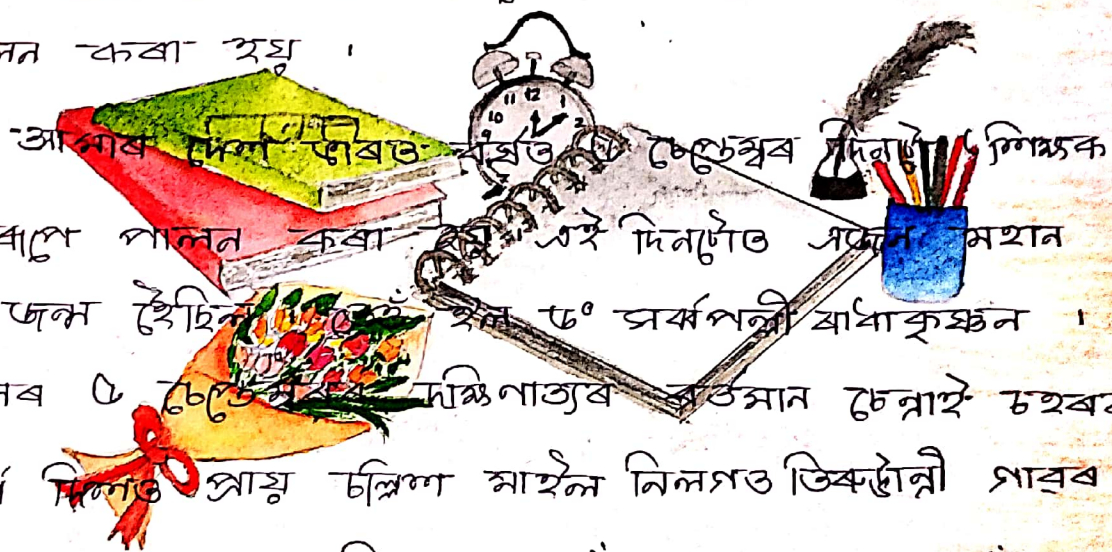 কৰা হয় ।
আমাৰ দেশ ভাৰত বৰ্ষত ৫ চেপ্তেম্বৰ দিনটো শিক্ষক
ৰূপে পালন কৰা হয় । এই দিনটোত এজন মহান
জন্ম হৈছিল । তেওঁ হল ড° সৰ্বপল্লী ৰাধাকৃষ্ণন ।
৫ চেপ্তেম্বৰত দক্ষিণাত্যৰ বৰ্তমান চেন্নাই চহৰৰ
দিশত প্ৰায় চল্লিশ মাইল নিলগত গাৱৰ